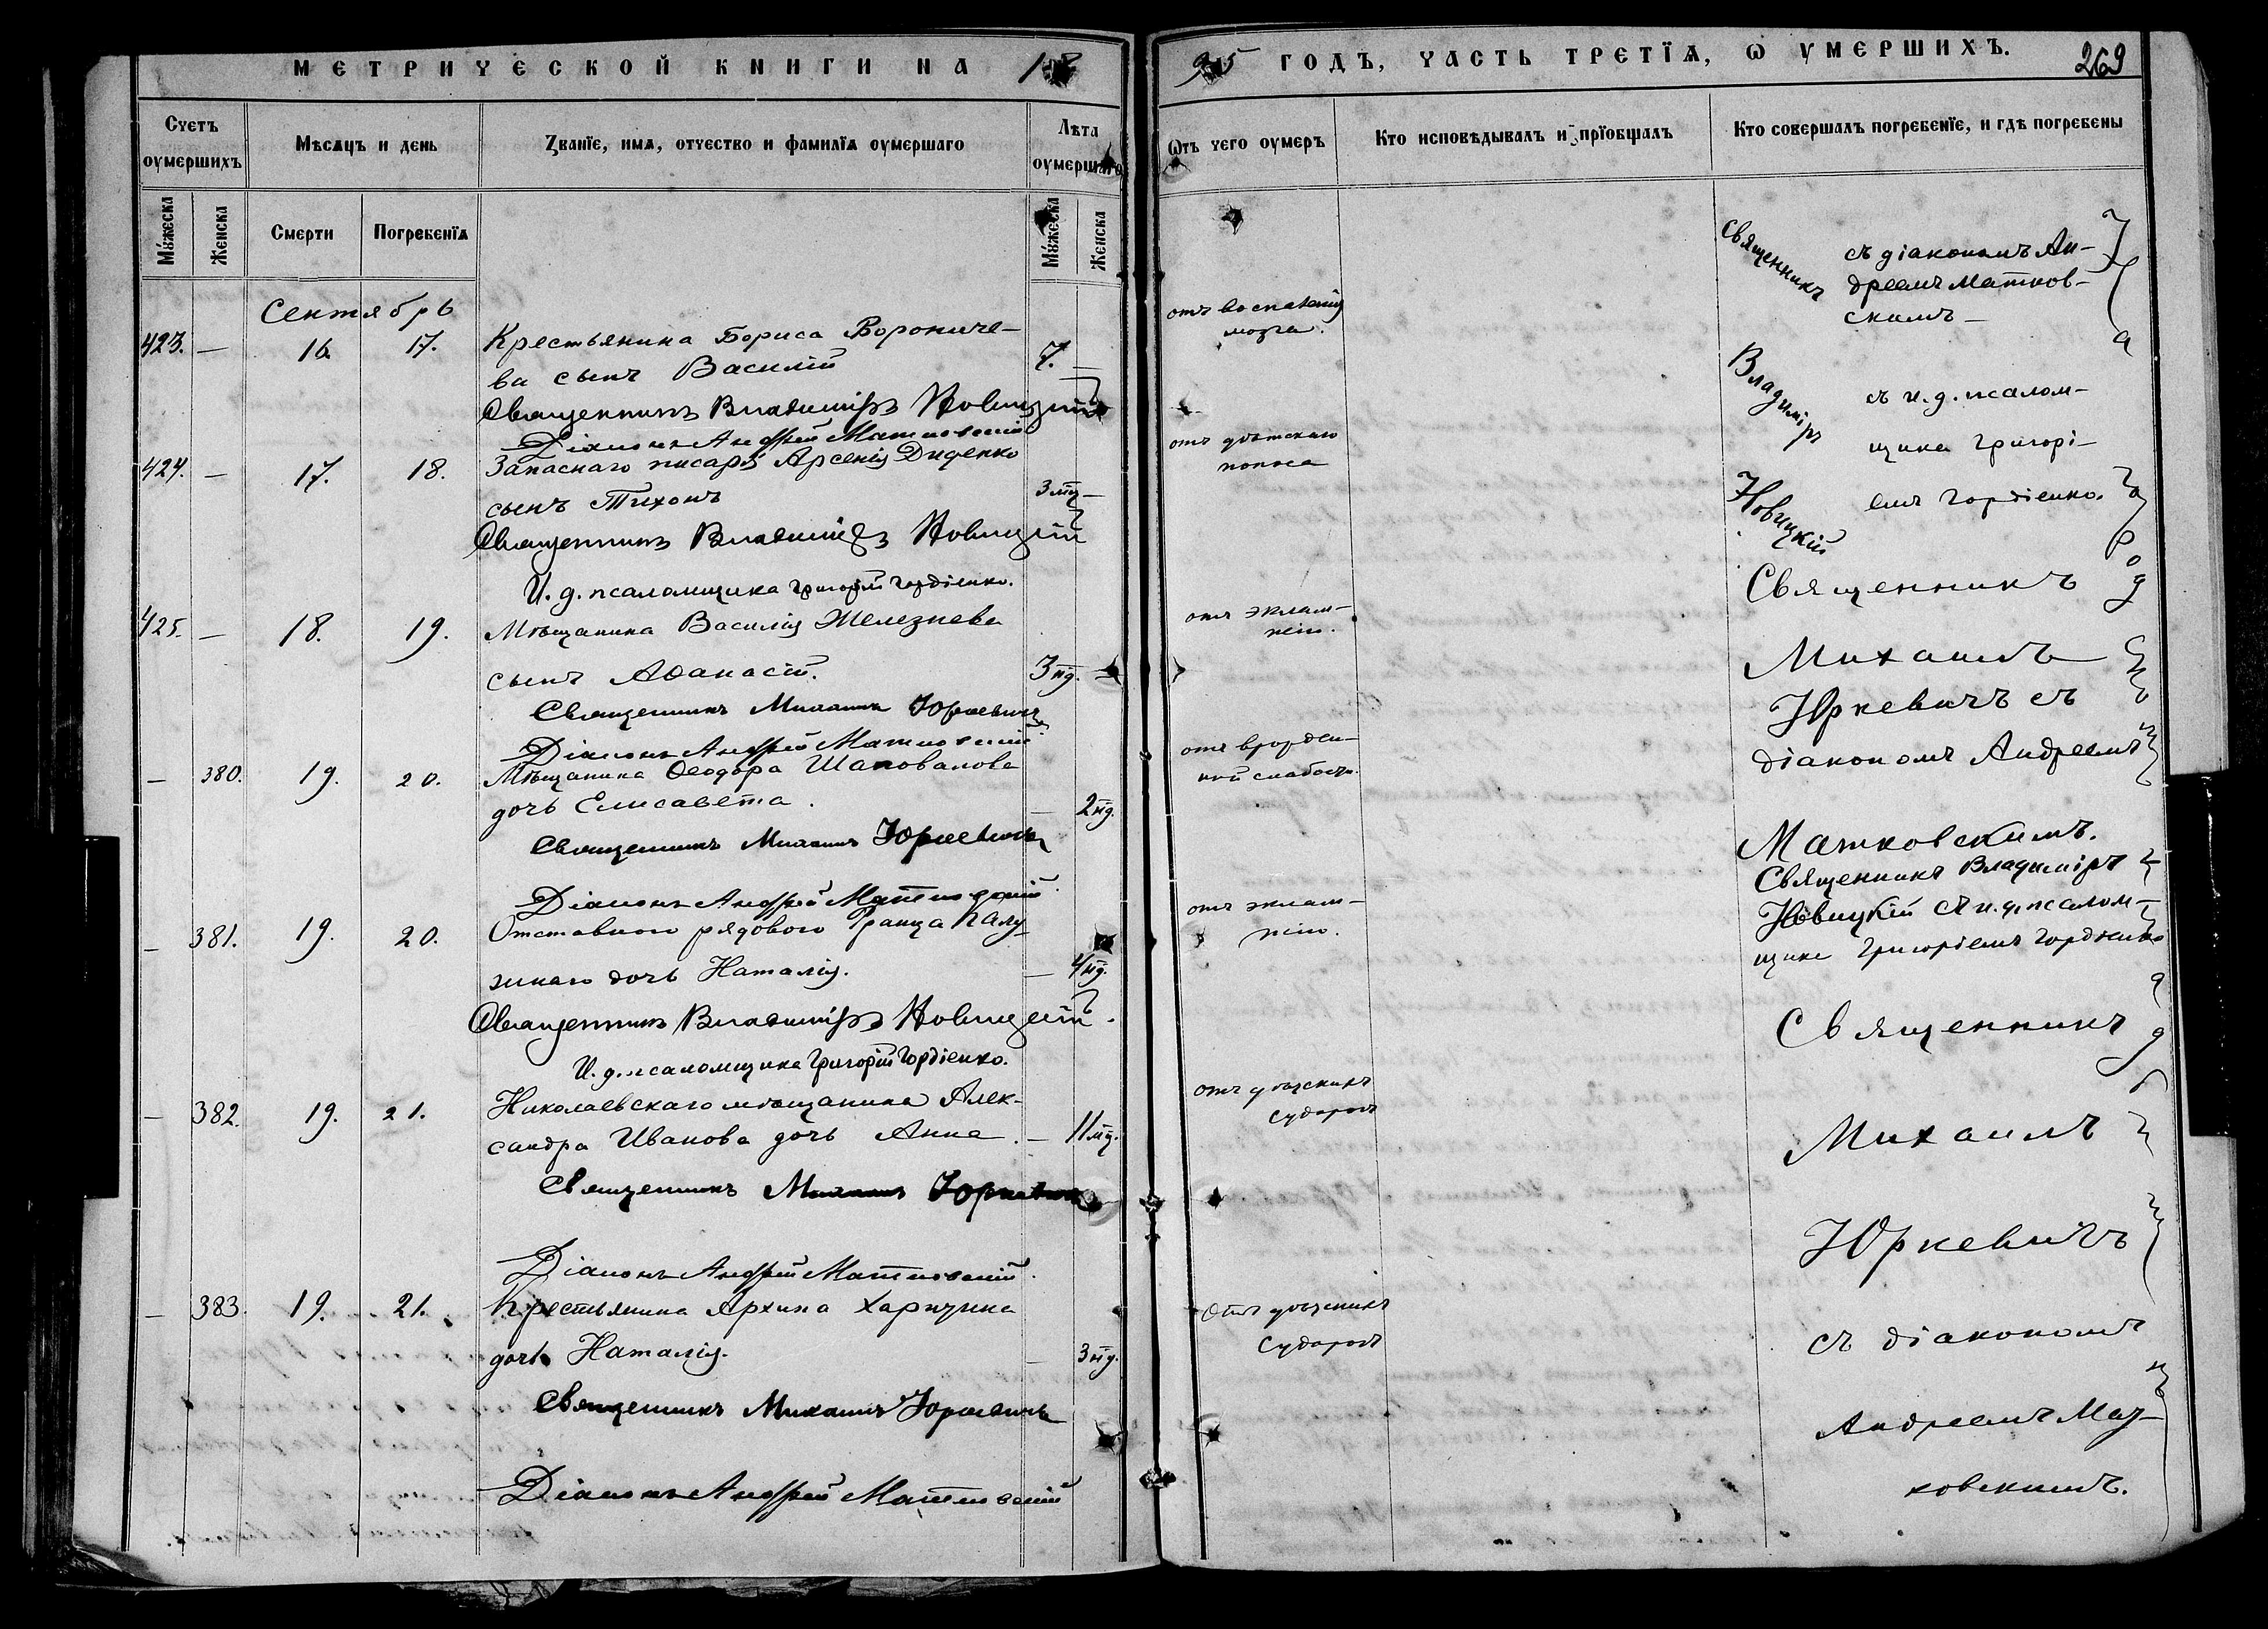 МЕТРИЧЕСКОЙ КНИГИ НА 18
95 ГОДЪ, ЧАСТЬ ТРЕТІЯ, Ѡ УМЕРШИХЪ.
269
Счетъ оумершихъ
Мѣсяцъ и день
Званїе, имя, отчество и фамилїя оумершаго
Лѣта оумершаго
Ѿтъ чего оумеръ
Кто исповѣдывалъ и прїобщалъ
Кто совершалъ погребенїе, и гдѣ погребены
Мужеска
Женска
Смерти
Погребенїя
Мужеска
Женска
Сентябрь
423. — 16. 17. Крестьянина Бориса Ворониче-
ва сынъ Василій 7. —
Священникъ Владиміръ Новицкій
Діаконъ Андрей Матковскій
424. — 17. 18. Запаснаго писаря Арсенія Диденко
сынъ Тихонъ 3 мц —
Священникъ Владиміръ Новицкій
И. д. псаломщика Григорій Гордіенко.
425. — 18. 19. Мѣщанина Василія Железнева
сынъ Аѳанасій. 3 нд. —
Священникъ Михаилъ Юркевичъ
Діаконъ Андрей Матковскій
— 380. 19. 20. Мѣщанина Ѳеодора Шаповалова
дочь Елисавета. — 2 нд.
Священникъ Михаилъ Юркевичъ
Діаконъ Андрей Матковскій
— 381. 19. 20. Отставного рядового Франца Палу-
зинаго дочь Наталія. — 4 нд.
Священникъ Владиміръ Новицкій.
И. д. псаломщика Григорій Гордіенко.
— 382. 19. 21. Николаевскаго мѣщанина Алек-
сандра Иванова дочь Анна. — 11 мц.
Священникъ Михаилъ Юркевичъ
Діаконъ Андрей Матковскій.
— 383. 19. 21. Крестьянина Архипа Харизина
дочь Наталія. — 3 нд.
Священникъ Михаилъ Юркевичъ
Діаконъ Андрей Матковскій
отъ воспаленія
мозга.
отъ дѣтскаго
поноса
отъ эклам-
псіи.
отъ врожден-
ной слабости.
отъ эклам-
псіи.
отъ дѣтскихъ
судорогъ
Отъ дѣтскихъ
судорогъ
Священникъ
Владиміръ
Новицкій
съ діакономъ Ан-
дреемъ Матков-
скимъ —
съ и. д. псалом-
щика Григорі-
емъ Гордіенко.
Священникъ
Михаилъ
Юркевичъ съ
діакономъ Андреемъ
Матковскимъ.
Священникъ Владиміръ
Новицкій съ и. д. псалом-
щика Григоріемъ Гордіенко
Священникъ
Михаилъ
Юркевичъ
съ діакономъ
Андреемъ Мат-
ковскимъ.